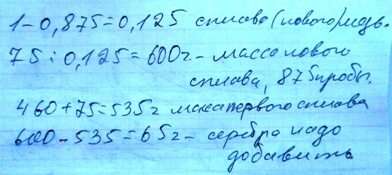 1-0,875=0,125 сплава (нового) медь.
75:0,125=600г- масса нового
сплава, 875 пробы.
460+75=535г масса первого сплава
600-535=65г- серебра надо
добавить